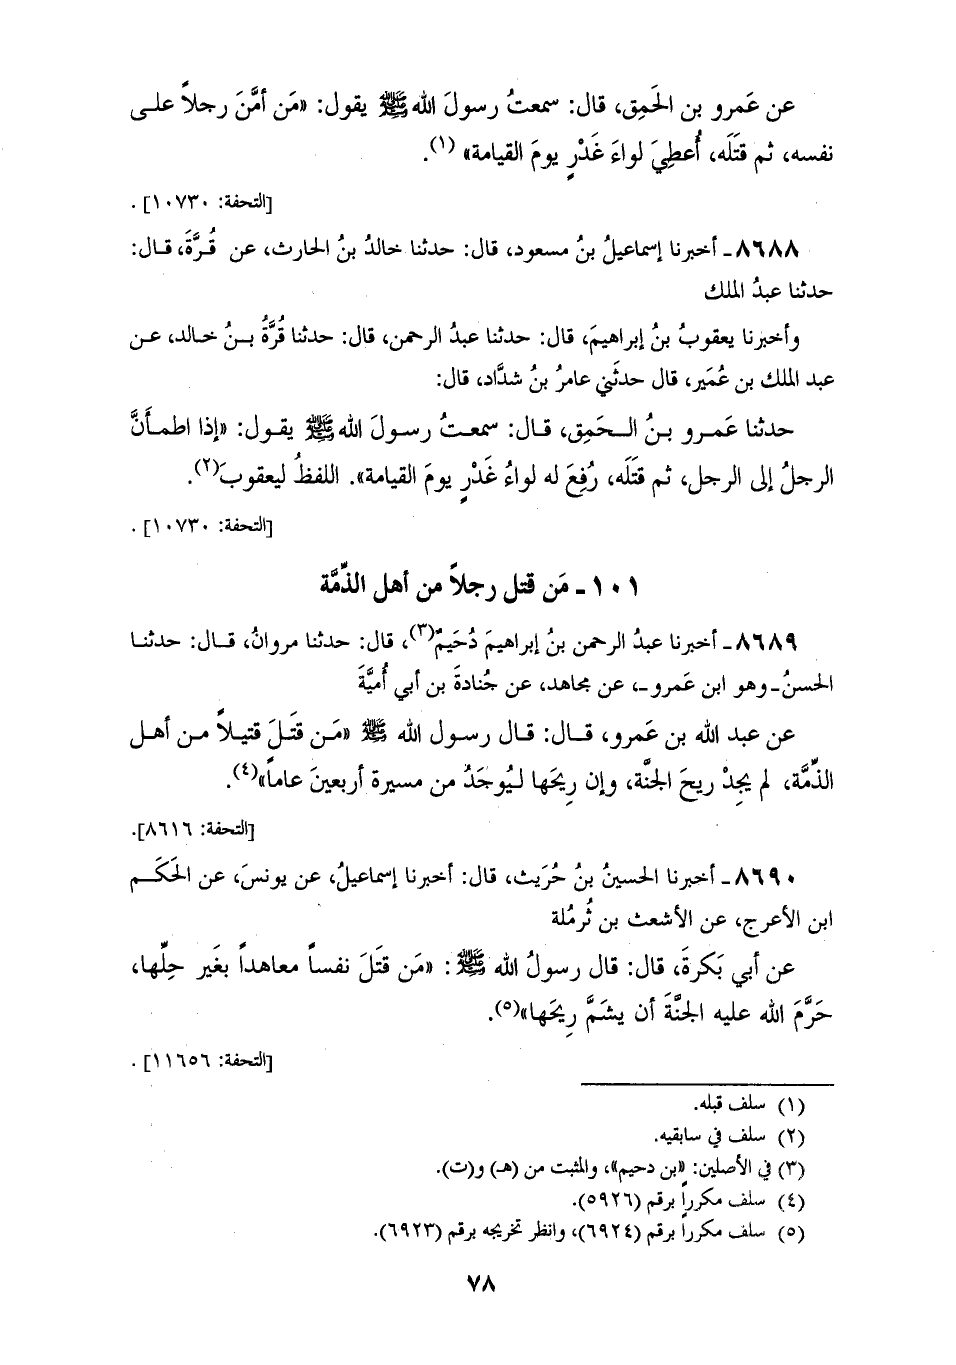 عن عَمرو بن الحَمِق، قال: سمعتُ رسولَ الله ﷺ يقول: «مَن أمَّنَ رجلاً على
نفسه، ثم قتَلَه، أُعطِيَ لواءَ غَدْرٍ يومَ القيامة» (١).
[التحفة: ١٠٧٣٠] .
٨٦٨٨ ـ أخبرنا إسماعيلُ بنُ مسعود، قال: حدثنا خالدُ بنُ الحارث، عن قُرَّةَ، قال:
حدثنا عبدُ الملك
وأخبرنا يعقوبُ بنُ إبراهيمَ، قال: حدثنا عبدُ الرحمن، قال: حدثنا قُرَّةُ بنُ خالد، عن
عبد الملك بن عُمَير، قال حدثَني عامرُ بنُ شدَّاد، قال:
حدثنا عَمرو بنُ الحَمِق، قال: سمعتُ رسولَ الله ﷺ يقول: «إذا اطمأنَّ
الرجلُ إلى الرجل، ثم قتَلَه، رُفِعَ له لواءُ غَدْرٍ يومَ القيامة». اللفظُ ليعقوبَ(٢).
[التحفة: ١٠٧٣٠] .
١٠١ ـ مَن قتل رجلاً من أهل الذِّمَّة
٨٦٨٩ ـ أخبرنا عبدُ الرحمن بنُ إبراهيمَ دُحَيمٌ(٣)، قال: حدثنا مروانُ، قال: حدثنا
الحسنُ ـ وهو ابن عَمرو ـ، عن مجاهد، عن جُنادةَ بن أبي أُميَّةَ
عن عبد الله بن عَمرو، قال: قال رسول الله ﷺ «مَن قتَلَ قتيلاً من أهل
الذِّمَّة، لم يجِدْ ريحَ الجنَّة، وإن رِيحَها ليُوجَدُ من مسيرة أربعينَ عاماً»(٤).
[التحفة: ٨٦١٦].
٨٦٩٠ ـ أخبرنا الحسينُ بنُ حُرَيث، قال: أخبرنا إسماعيلُ، عن يونسَ، عن الحَكَم
ابن الأعرج، عن الأشعث بن ثُرمُلة
عن أبي بَكرةَ، قال: قال رسولُ الله ﷺ: «مَن قتَلَ نفساً معاهداً بغَير حِلِّها،
حَرَّمَ الله عليه الجنَّةَ أن يشَمَّ رِيحَها»(٥).
[التحفة: ١١٦٥٦] .
(١) سلف قبله.
(٢) سلف في سابقيه.
(٣) في الأصلين: «ابن دحيم»، والمثبت من (هـ) و(ت).
(٤) سلف مكرراً برقم (٥٩٢٦).
(٥) سلف مكرراً برقم (٦٩٢٤)، وانظر تخريجه برقم (٦٩٢٣).
٧٨